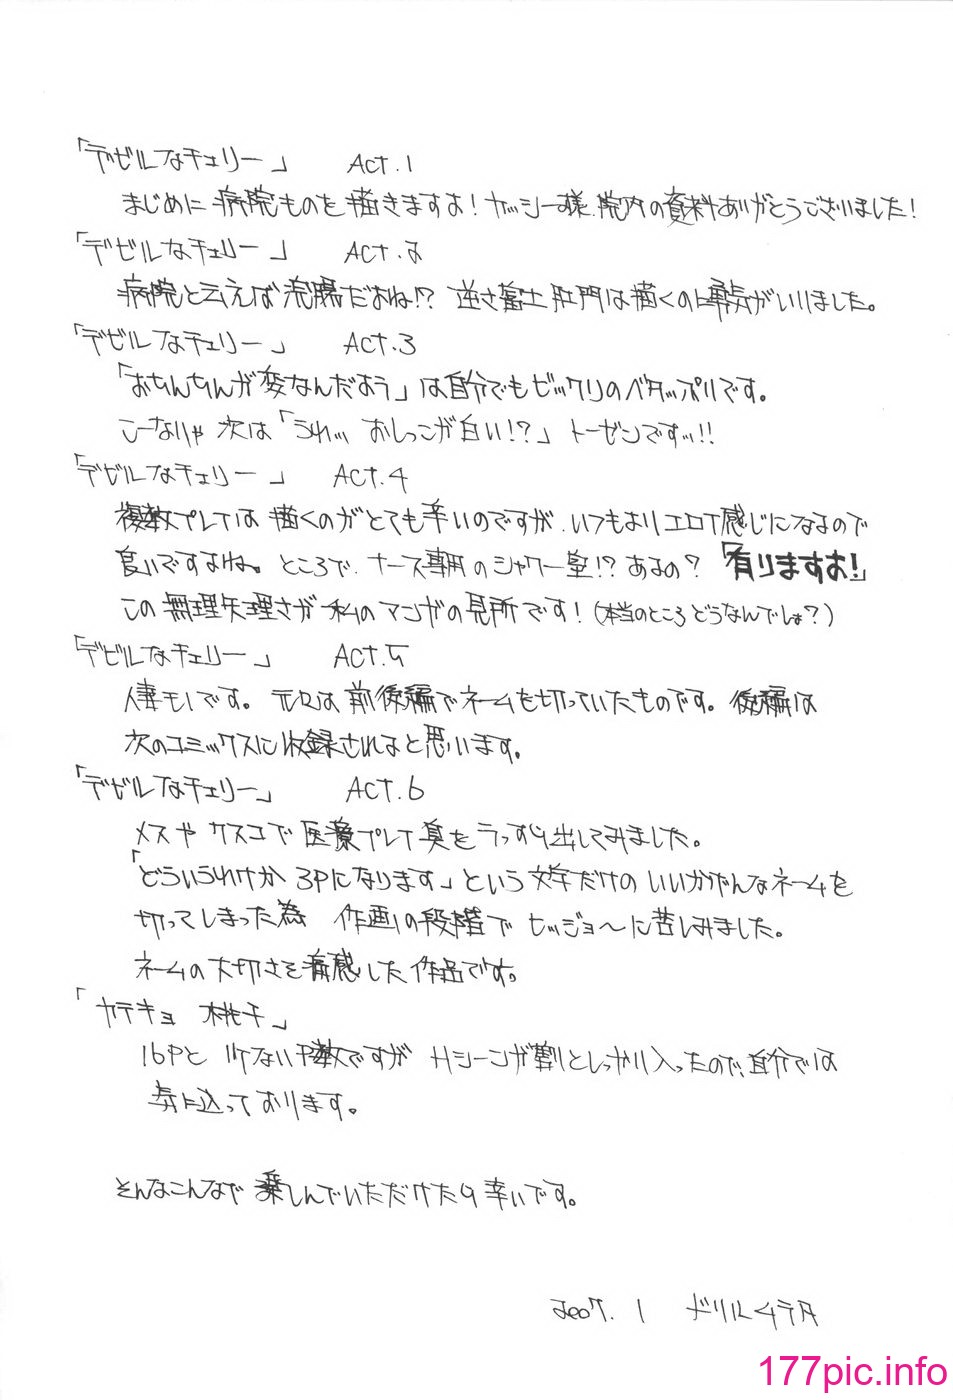 「デビルなチェリー」 ACT.1
まじめに病院ものを描きますよ！ヤッシー様、院内の資料ありがとうございました！
「デビルなチェリー」 ACT.2
病院と云えば浣腸だよね!? 逆さ富士肛門は描くのに勇気がいりました。
「デビルなチェリー」 ACT.3
「おちんちんが変なんだよう」は自分でもビックリのベタッぷりです。
こーなりゃ次は「うわッ おしっこが白い!?」トーゼンですッ!!
「デビルなチェリー」 ACT.4
複数プレイは描くのがとても辛いのですが、いつもよりエロイ感じになるので
良いですよね。ところで、ナース専用のシャワー室!? あるの？「有りますよ！」
この無理矢理さが私のマンガの見所です！(本当のところどうなんでしょ？)
「デビルなチェリー」 ACT.5
人妻モノです。元々は前後編でネームを切っていたものです。後編は
次のコミックスに収録されると思います。
「デビルなチェリー」 ACT.6
メスやクスコで医療プレイ臭をうっすら出してみました。
「どういうわけか3Pになります」という文字だけのいいかげんなネームを
切ってしまった為 作画の段階でヒッジョ〜に苦しみました。
ネームの大切さを痛感した作品です。
「カテキョ 桃子」
16Pと少ないP数ですがHシーンが割としっかり入ったので、自分では
気に込っております。
そんなこんなで楽しんでいただけたら幸いです。
2007. 1 ドリルムラタ
177pic.info